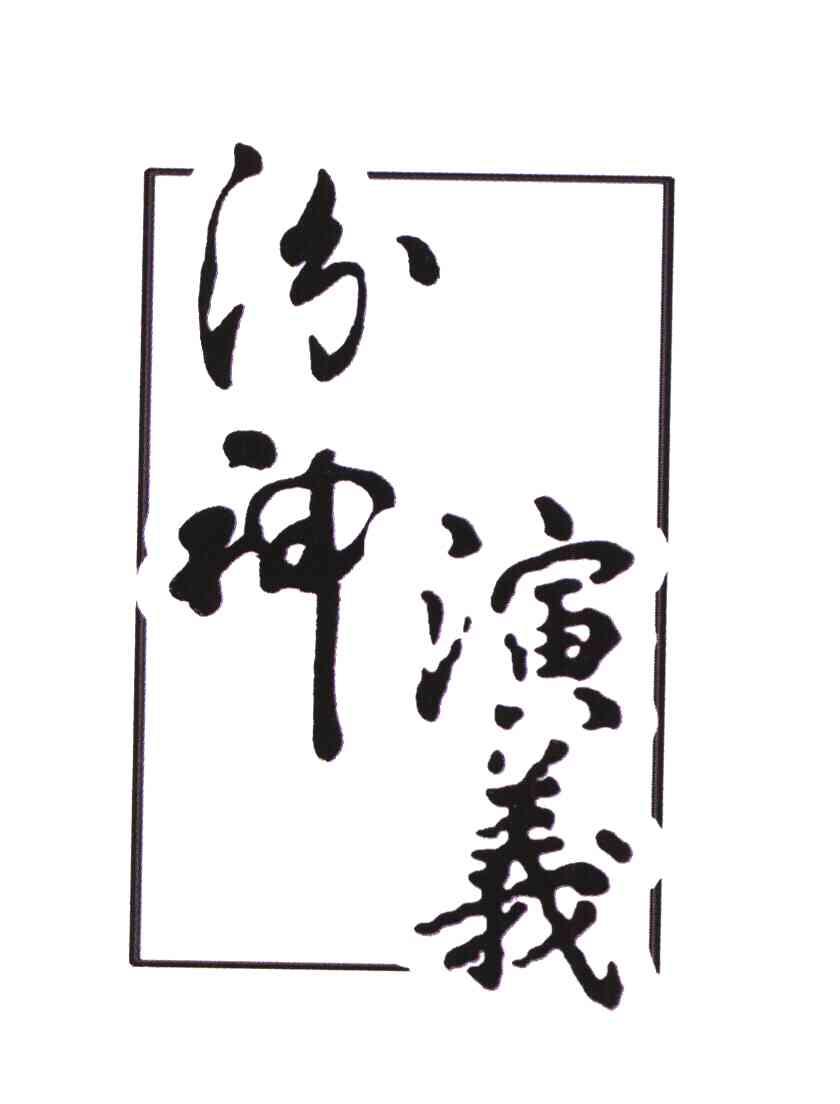 汾神
演義